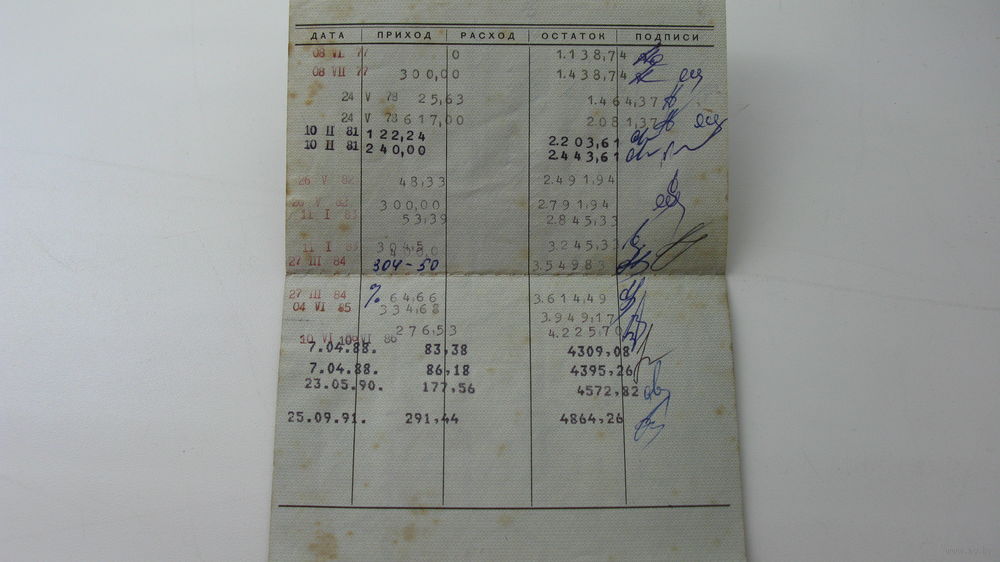 ДАТА ПРИХОД РАСХОД ОСТАТОК ПОДПИСИ
08 VI 77 0 1.138,74
08 VII 77 300,00 1.438,74
24 V 78 25,63 1.464,37
24 V 78 617,00 2081,37
10 II 81 122,24 2.203,61
10 II 81 240,00 2.443,61
26 V 82 48,33 2.491,94
26 V 82 300,00 2.791,94
11 I 83 53,39 2.845,33
11 I 83 3.245,33
27 III 84 304-50 3.549,83
27 III 84 % 64,66 3.614,49
04 VI 85 334,68 3.949,17
10 VI 86 276,53 4.225,70
7.04.88. 83,38 4309,08
7.04.88. 86,18 4395,26
23.05.90. 177,56 4572,82
25.09.91. 291,44 4864,26